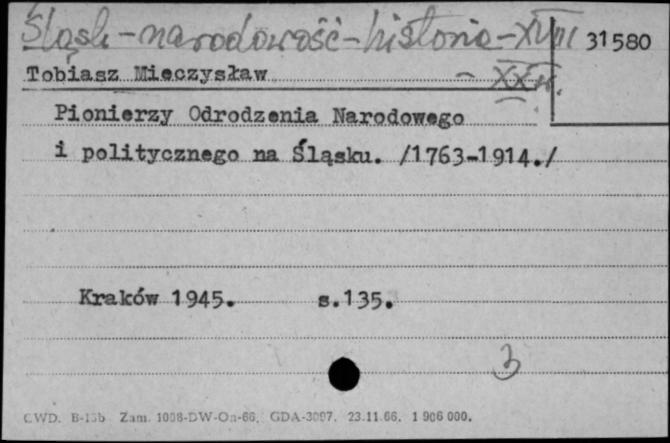 Śląsk - narodowość - historia - XVIII 31580
Tobiasz Mieczysław - XX w.
Pionierzy Odrodzenia Narodowego
i politycznego na Śląsku. /1763-1914./
Kraków 1945. s.135.
3
CWD. B-13b Zam. 1008-DW-On-66. GDA-3097. 23.11.66. 1 906 000.